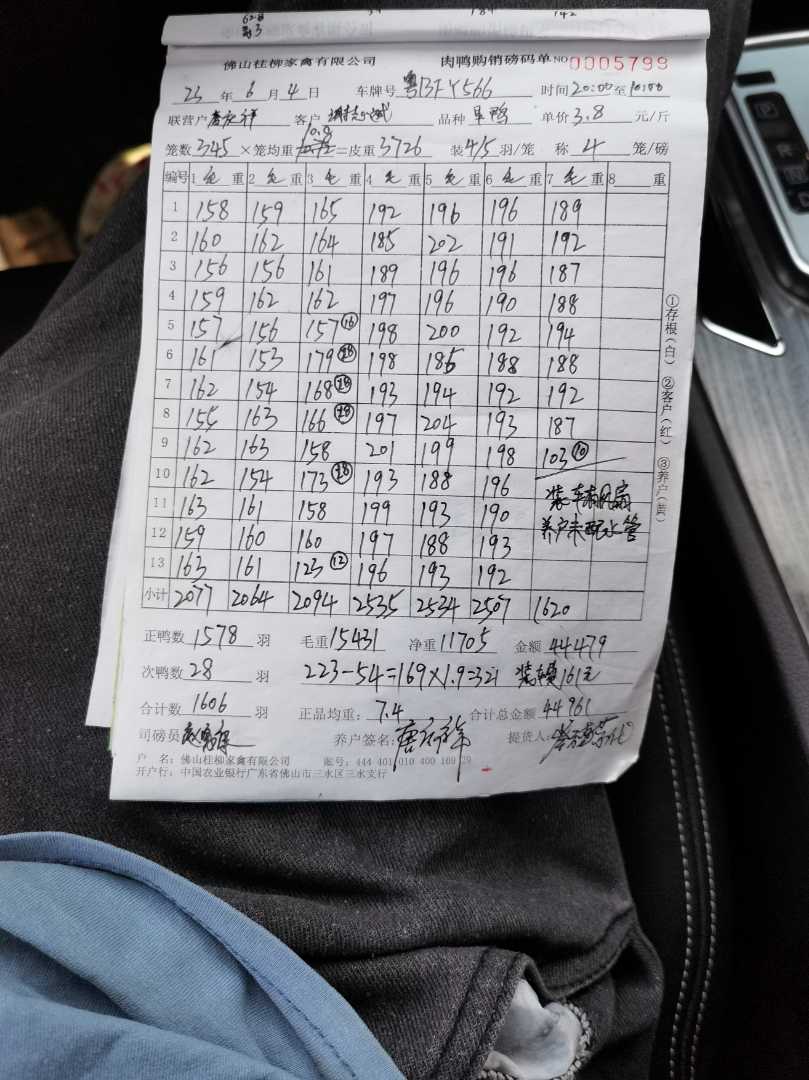 佛山桂柳家禽有限公司 肉鸭购销磅码单 NO 0005799
23 年 6 月 4 日 车牌号 粤BFY566 时间 20:00 至
联营户 客户 品种 单价 3.8 元/斤
笼数 345 ×笼均重 10.8 =皮重 3726 装 4/5 羽/笼 称 4 笼/磅
编号 1 毛 重 2 毛 重 3 毛 重 4 毛 重 5 毛 重 6 毛 重 7 毛 重 8 重
1 158 159 165 192 196 196 189
2 160 162 164 185 202 191 192
3 156 156 161 189 196 196 187
4 159 162 162 197 196 190 188
5 157 156 157 16 198 200 192 194
6 161 153 179 198 186 188 188
7 162 154 168 193 194 192 192
8 155 163 166 197 204 193 187
9 162 163 158 201 199 198 103 10
10 162 154 173 193 188 196
11 163 161 158 199 193 190
12 159 160 160 197 188 193
13 163 161 123 12 196 193 192
小计 2077 2064 2094 2535 2534 2507 1620
装车有风扇
养户未配水管
正鸭数 1578 羽 毛重 15431 净重 11705 金额 44479
次鸭数 28 羽 223-54=169×1.9=321 161元
合计数 1606 羽 正品均重: 7.4 合计总金额 44961
司磅员 养户签名: 提货人:
户 名: 佛山桂柳家禽有限公司 账号: 444 401 010 400 109 29
开户行: 中国农业银行广东省佛山市三水区三水支行
①存根(白) ②客户(红) ③养户(黄)